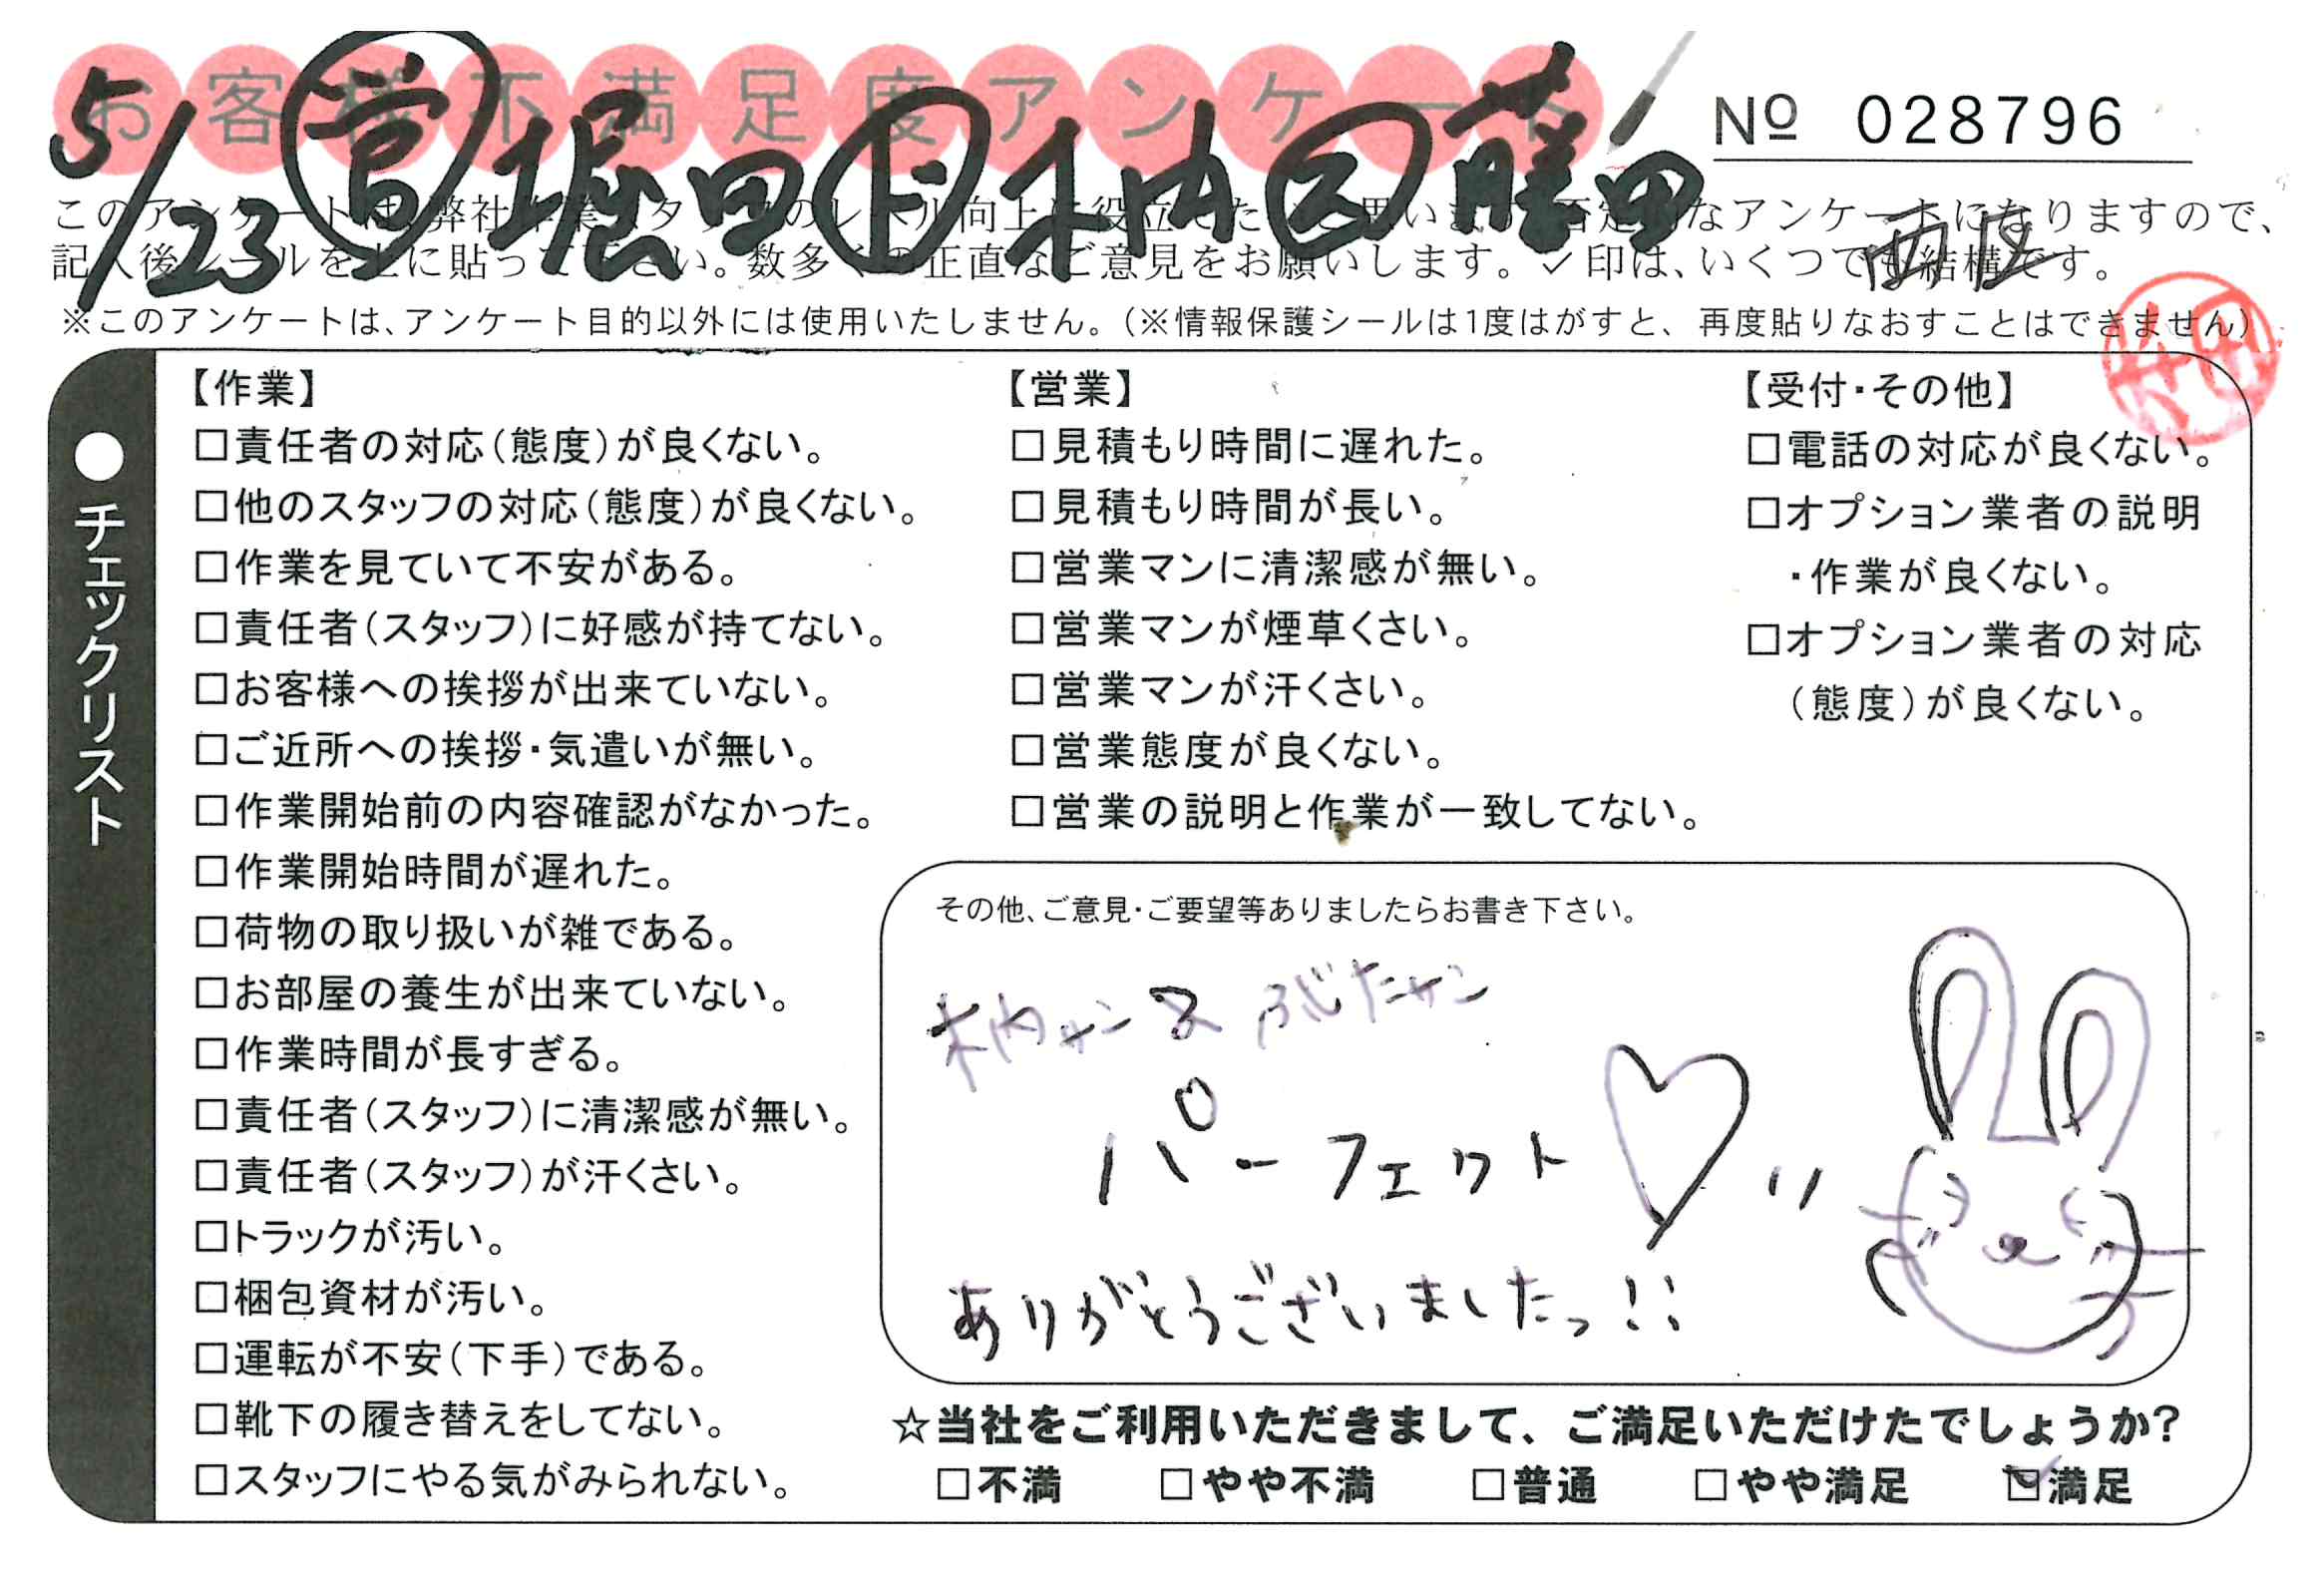 お客様不満足度アンケート
№ 028796
5/23 営 堀田 ド 木内 ス 藤田
西区
このアンケートは、弊社作業スタッフのレベル向上に役立てたいと思います。否定的なアンケートになりますので、
記入後シールを上に貼って下さい。数多くの正直なご意見をお願いします。✓印は、いくつでも結構です。
※このアンケートは、アンケート目的以外には使用いたしません。(※情報保護シールは1度はがすと、再度貼りなおすことはできません)
●チェックリスト
【作業】
□責任者の対応(態度)が良くない。
□他のスタッフの対応(態度)が良くない。
□作業を見ていて不安がある。
□責任者(スタッフ)に好感が持てない。
□お客様への挨拶が出来ていない。
□ご近所への挨拶・気遣いが無い。
□作業開始前の内容確認がなかった。
□作業開始時間が遅れた。
□荷物の取り扱いが雑である。
□お部屋の養生が出来ていない。
□作業時間が長すぎる。
□責任者(スタッフ)に清潔感が無い。
□責任者(スタッフ)が汗くさい。
□トラックが汚い。
□梱包資材が汚い。
□運転が不安(下手)である。
□靴下の履き替えをしてない。
□スタッフにやる気がみられない。
【営業】
□見積もり時間に遅れた。
□見積もり時間が長い。
□営業マンに清潔感が無い。
□営業マンが煙草くさい。
□営業マンが汗くさい。
□営業態度が良くない。
□営業の説明と作業が一致してない。
【受付・その他】
□電話の対応が良くない。
□オプション業者の説明
・作業が良くない。
□オプション業者の対応
(態度)が良くない。
その他、ご意見・ご要望等ありましたらお書き下さい。
木内サン&ふじたサン
パーフェクト♡"
ありがとうございましたっ!!
☆当社をご利用いただきまして、ご満足いただけたでしょうか?
□不満 □やや不満 □普通 □やや満足 ☑満足